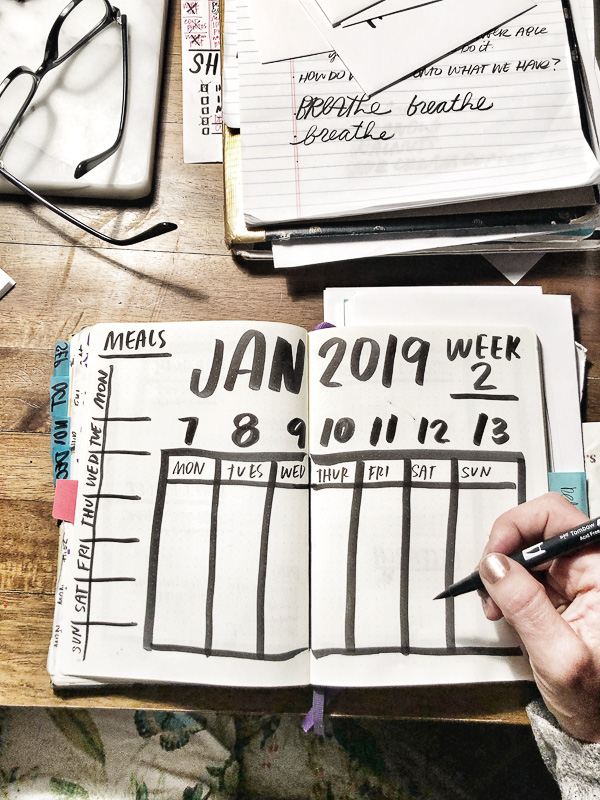 SH
ABLE
DO IT.
· HOW DO WHAT WE HAVE?
BREAthe breathe
· breathe
MEALS
JAN 2019 WEEK
2
7 8 9 10 11 12 13
MON TUES WED THUR FRI SAT SUN
MON
TUE
WED
THU
FRI
SAT
SUN
SEP OCT NOV DEC
Tombow
Acid Free